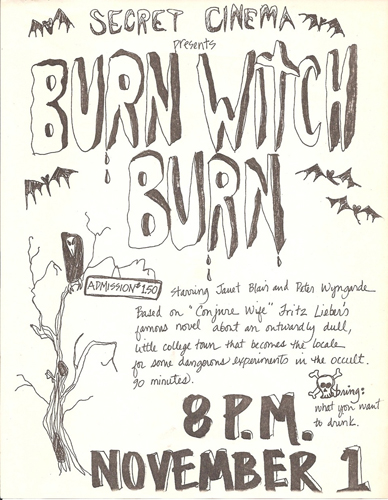 SECRET CINEMA
presents
BURN WITCH
BURN
ADMISSION $1.50
Starring Janet Blair and Peter Wyngarde
Based on "Conjure Wife" Fritz Lieber's
famous novel about an outwardly dull,
little college town that becomes the locale
for some dangerous experiments in the occult.
90 minutes.
bring:
what you want
to drink.
8 P.M.
NOVEMBER 1